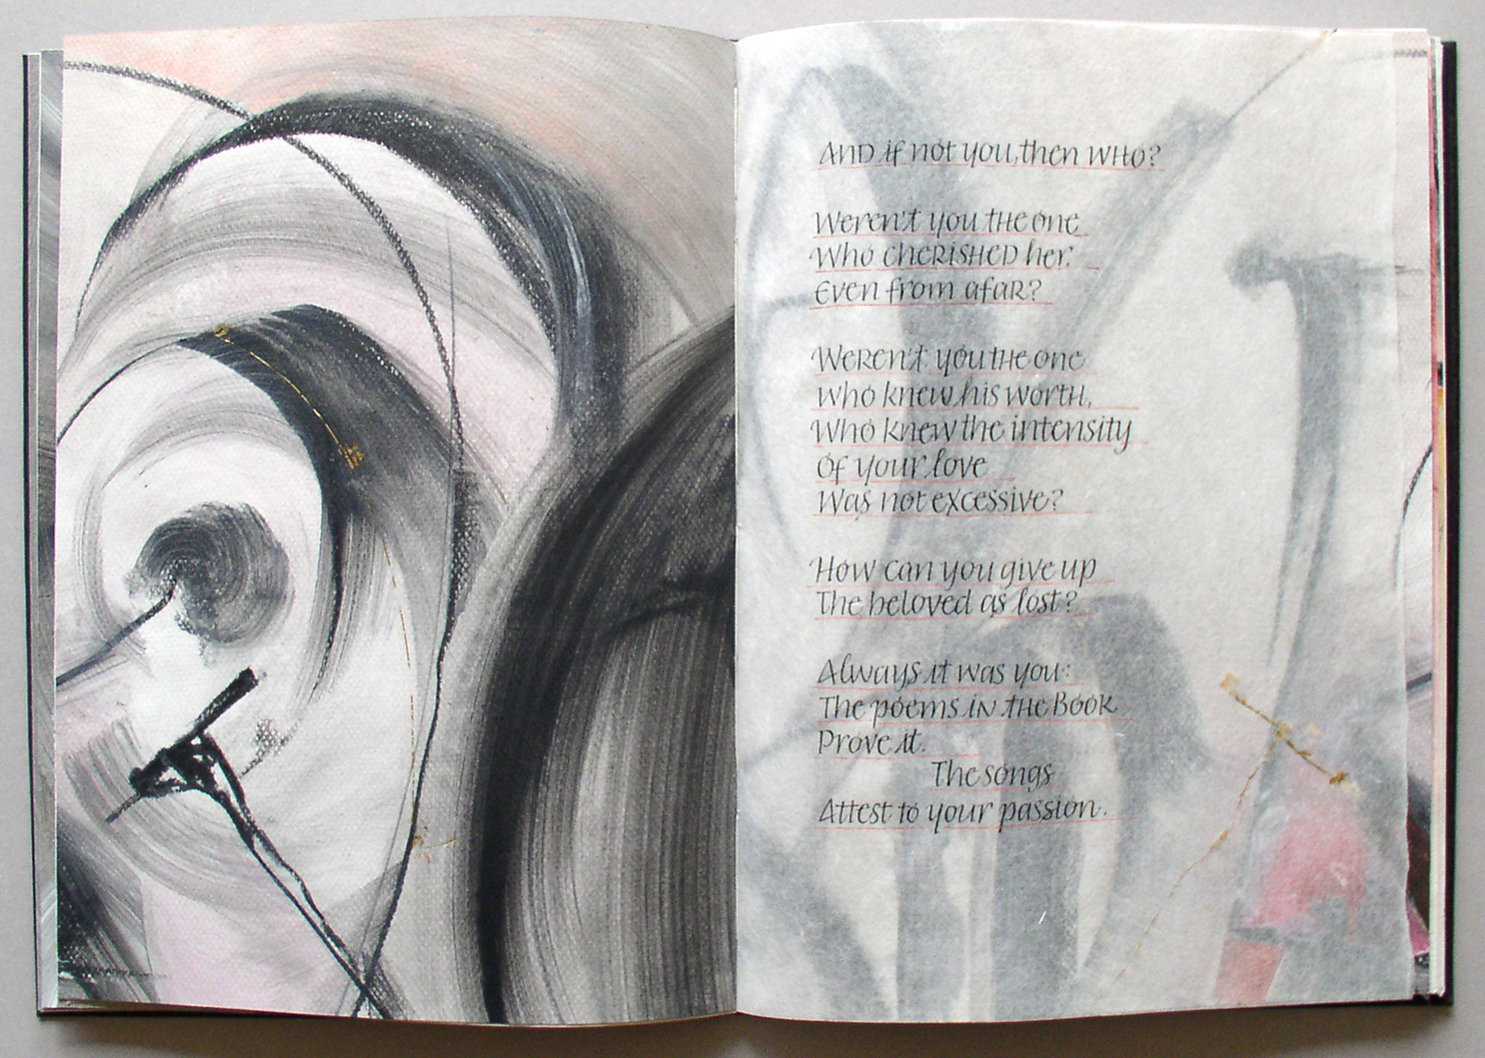 And if not you, then who?
Weren't you the one
Who cherished her:
Even from afar?
Weren't you the one
Who knew his worth,
Who knew the intensity
Of your love
Was not excessive?
How can you give up
The beloved as lost?
Always it was you:
The poems in the Book
Prove it.
The songs
Attest to your passion.